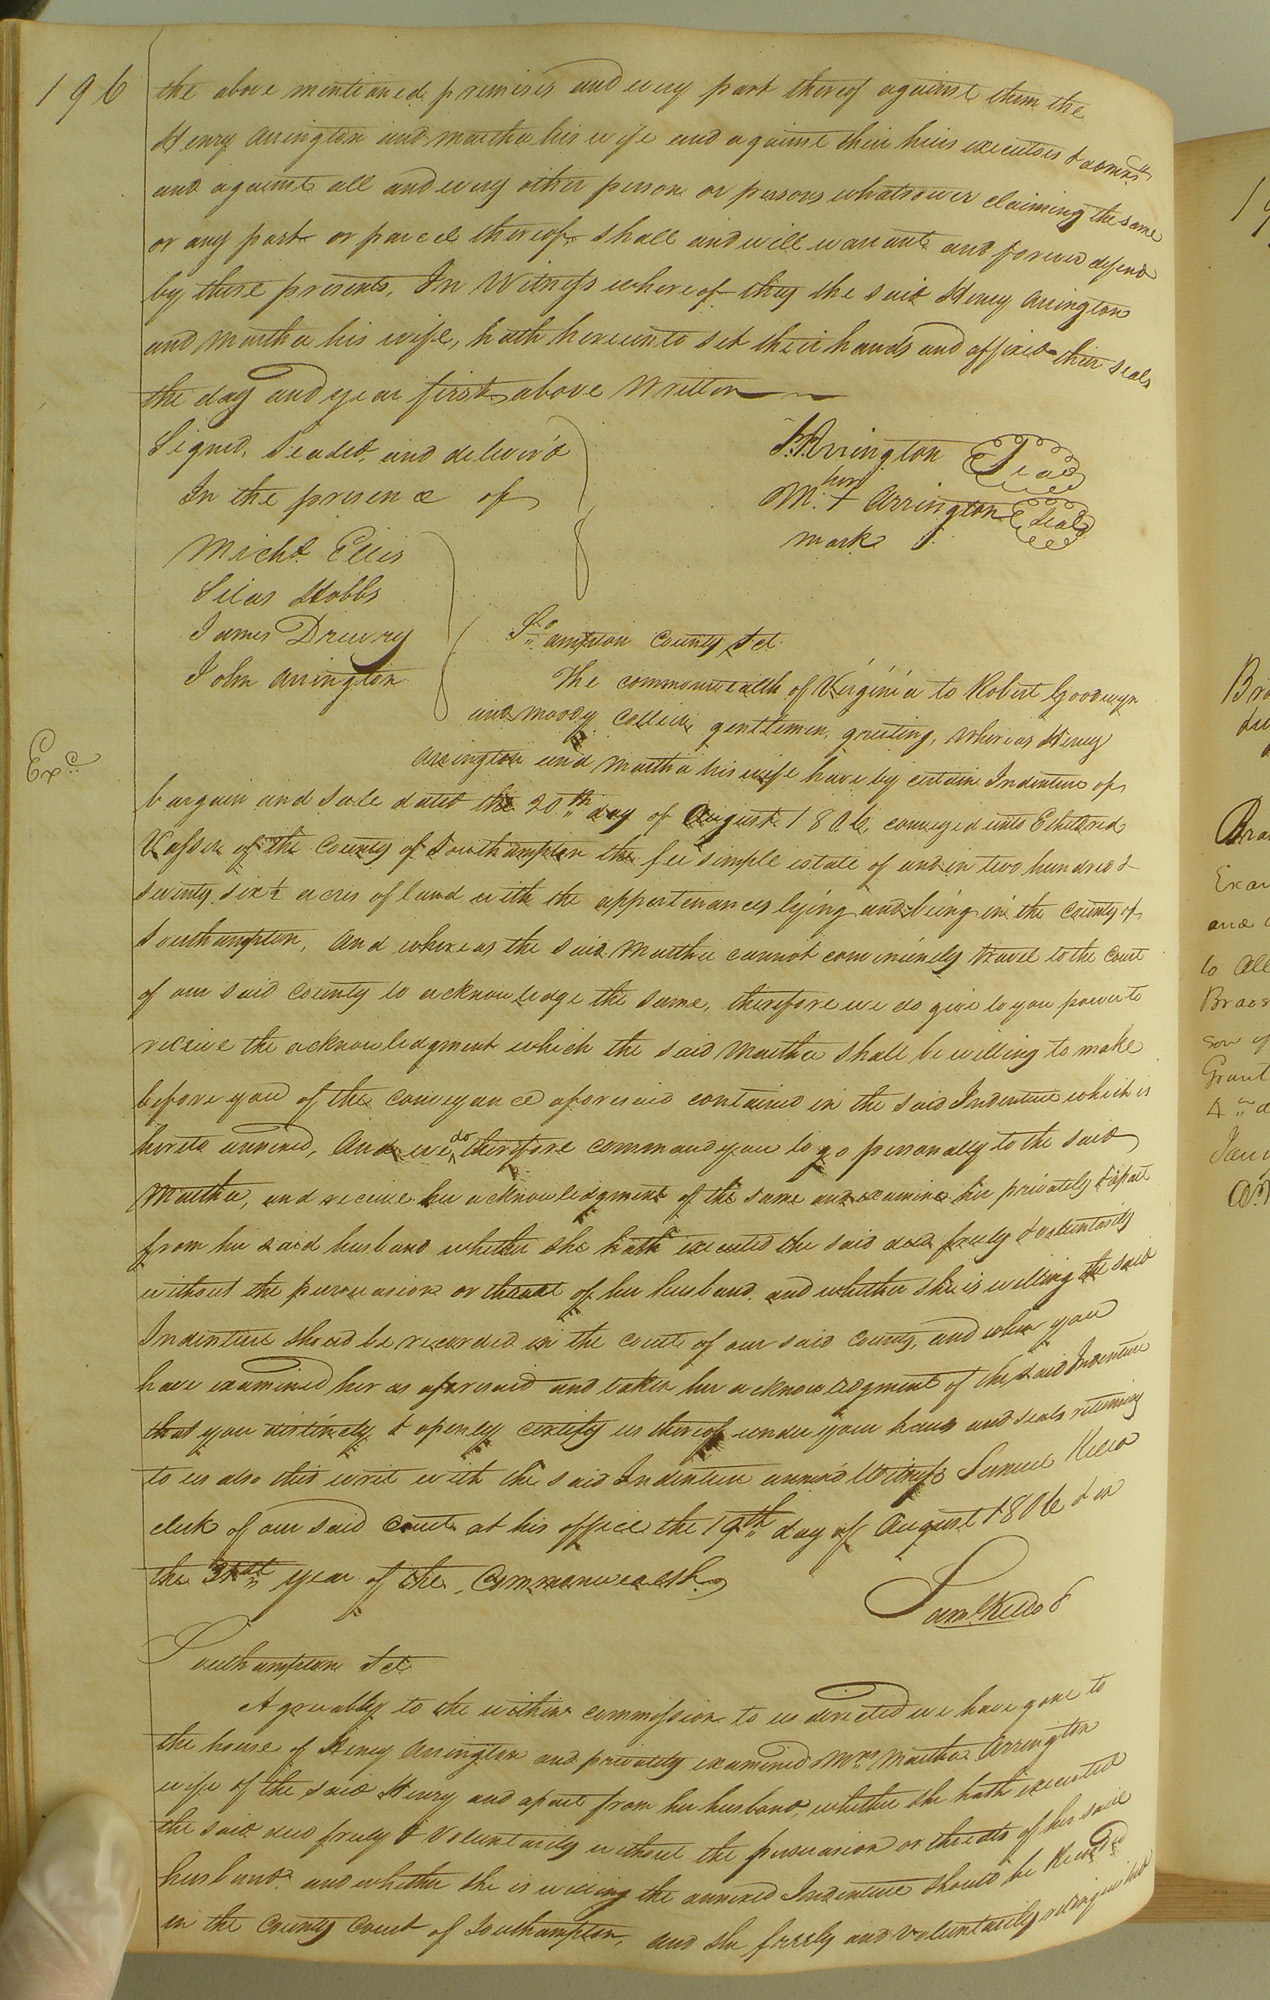 196
the above mentioned premises and every part thereof against them the
Henry Arrington and Martha his wife and against their heirs executors & admrs
and against all and every other person or persons whatsoever claiming the same
or any part or parcel thereof shall and will warrant and forever defend
by these presents. In Witness whereof they the said Henry Arrington
and Martha his wife, hath hereunto set their hands and affixed their seals
the day and year first above written
Signed, Sealed, and deliver'd
In the presence of
H. Arrington Seal
her
M. + Arrington Seal
mark
Michl. Ellis
Silas Hobbs
James Drewry
John Arrington
So. ampton County Sct.
The commonwealth of Virginia to Robert Goodwyn
and Moody gentlemen, greeting, whereas Henry
Exd.
Arrington and Martha his wife have by certain Indenture of
bargain and sale dated the 20th day of August 1806, conveyed unto Etheldred
of the County of Southampton the fee simple estate of and in two hundred &
seventy six ½ acres of land with the appertinances lying and being in the county of
Southampton, And whereas the said Martha cannot conveniently travel to the Court
of our said county to acknowledge the same, therefore we do give to you power to
receive the acknowledgment which the said Martha shall be willing to make
before you of the conveyance aforesaid contained in the said Indenture which is
hereto annexed, And we do therefore command you to go personally to the said
Martha, and receive her acknowledgment of the same and examine her privately & apart
from her said husband whether she hath executed the said deed freely & voluntarily
without the persuasion or threat of her husband. and whether she is willing the said
Indenture should be recorded in the court of our said county, and when you
have examined her as aforesaid and taken her acknowledgment of the said Indenture
that you distinctly & openly certify us thereof under your hands and seals returning
to us also this writ with the said Indenture annex'd Witness Samuel Kello
clerk of our said court at his office the 19th day of August 1806 & in
the 31st year of the Commonwealth
Saml. Kello
Southampton Sct.
Agreeably to the within commission to us directed we have gone to
the house of Henry Arrington and privately examined Mrs. Martha Arrington
wife of the said Henry and apart from her husband, whether she hath executed
the said deed freely & voluntarily without the persuasion or threats of her said
husband. and whether she is willing the annexed Indenture should be Recorded
in the County Court of Southampton, and she freely and voluntarily relinquished